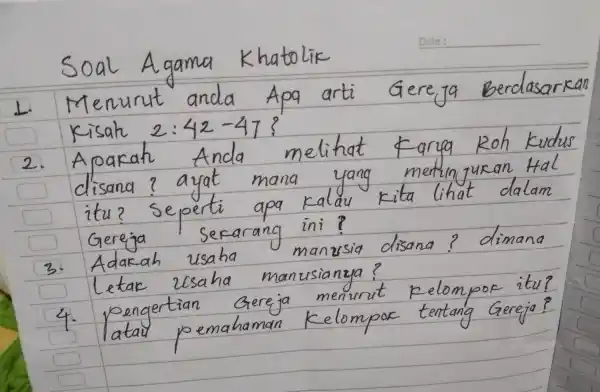 Date :
Soal Agama Khatolik
1. Menurut anda Apa arti Gereja Berdasarkan
Kisah 2:42-47?
2. Apakah Anda melihat Karya Roh Kudus
disana? ayat mana yang menunjukan Hal
itu? Seperti apa kalau kita lihat dalam
Gereja Sekarang ini?
3. Adakah usaha manusia disana? dimana
Letak usaha manusianya?
4. pengertian Gereja menurut kelompok itu?
atau pemahaman kelompok tentang Gereja?